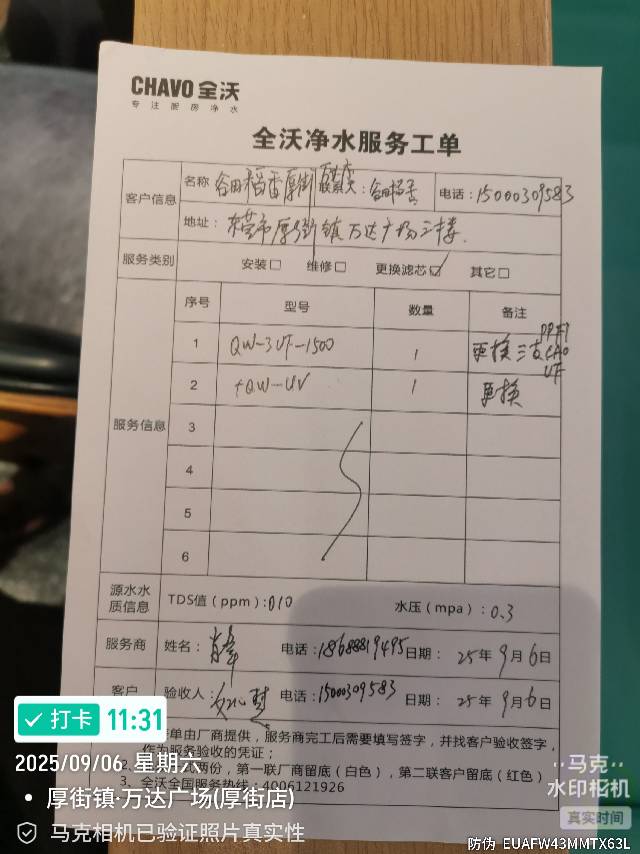 CHAVO 全沃
专 注 厨 房 净 水
全沃净水服务工单
客户信息 名称 谷田稻香厚街 联系人：谷田稻香 电话：15000309583
地址： 东莞市厚街镇万达广场三楼
服务类别 安装□ 维修□ 更换滤芯☑ 其它□
服务信息 序号 型号 数量 备注
1 QW-3UF-1500 1 更换三支 UF
2 +QW-UV 1 更换
3
4
5
6
源水水质信息 TDS值（ppm）：010 水压（mpa）：0.3
服务商 姓名： 电话：18688819495 日期： 25年9月6日
客户 验收人： 电话：15000309583 日期： 25年9月6日
单由厂商提供，服务商完工后需要填写签字，并找客户验收签字，
作为服务验收的凭证；
两份，第一联厂商留底（白色），第二联客户留底（红色）
3、全沃全国服务热线：4006121926
打卡 11:31
2025/09/06 星期六
• 厚街镇·万达广场(厚街店)
马克相机已验证照片真实性
马克
水印相机
真实时间
防伪 EUAFW43MMTX63L